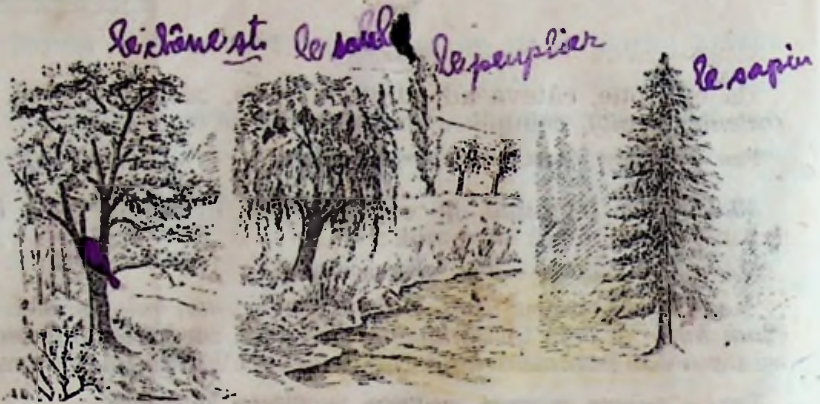 le chêne st.
le saule
le peuplier
le sapin